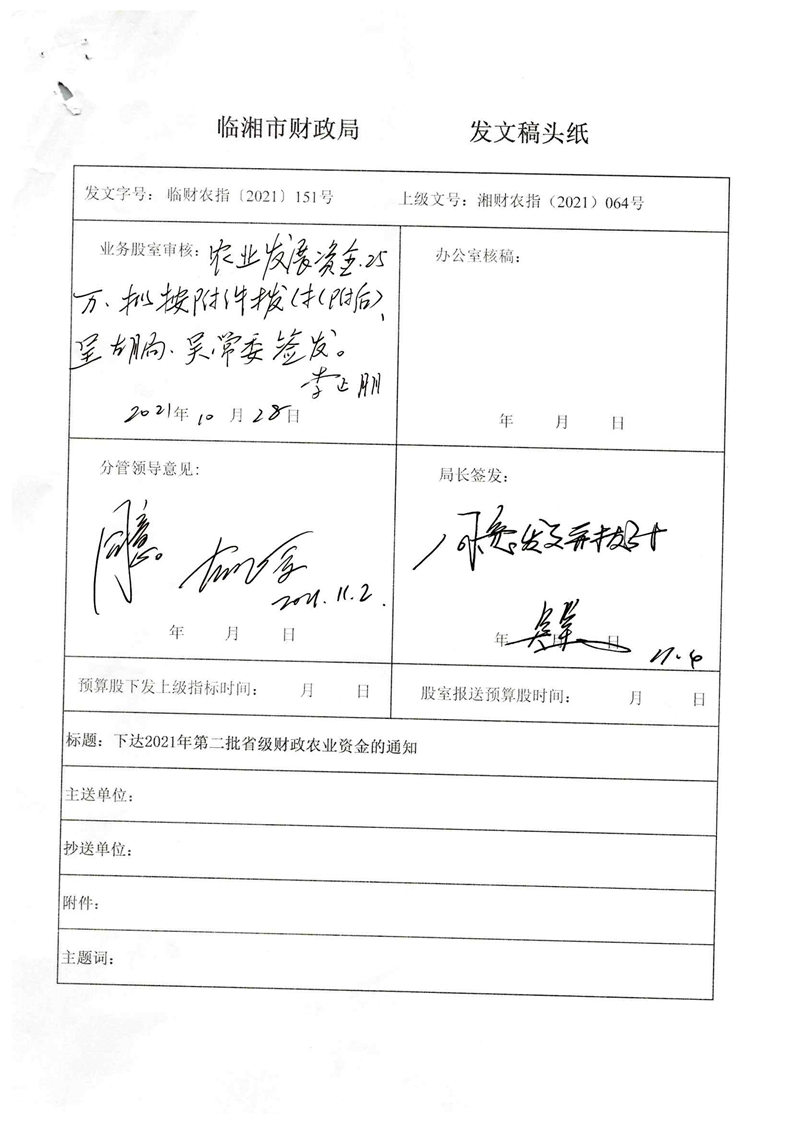 临湘市财政局 发文稿头纸
发文字号： 临财农指〔2021〕151号 上级文号： 湘财农指（2021）064号
业务股室审核：农业发展资金25
万、拟按附件拨付（附后）、
呈胡局、吴常委签发。
李正朋
2021年10月28日
办公室核稿：
年 月 日
分管领导意见：
同意。
2021.11.2.
年 月 日
局长签发：
同意发文并拨付
年 月 日
11.4
预算股下发上级指标时间： 月 日 股室报送预算股时间： 月 日
标题：下达2021年第二批省级财政农业资金的通知
主送单位：
抄送单位：
附件：
主题词：